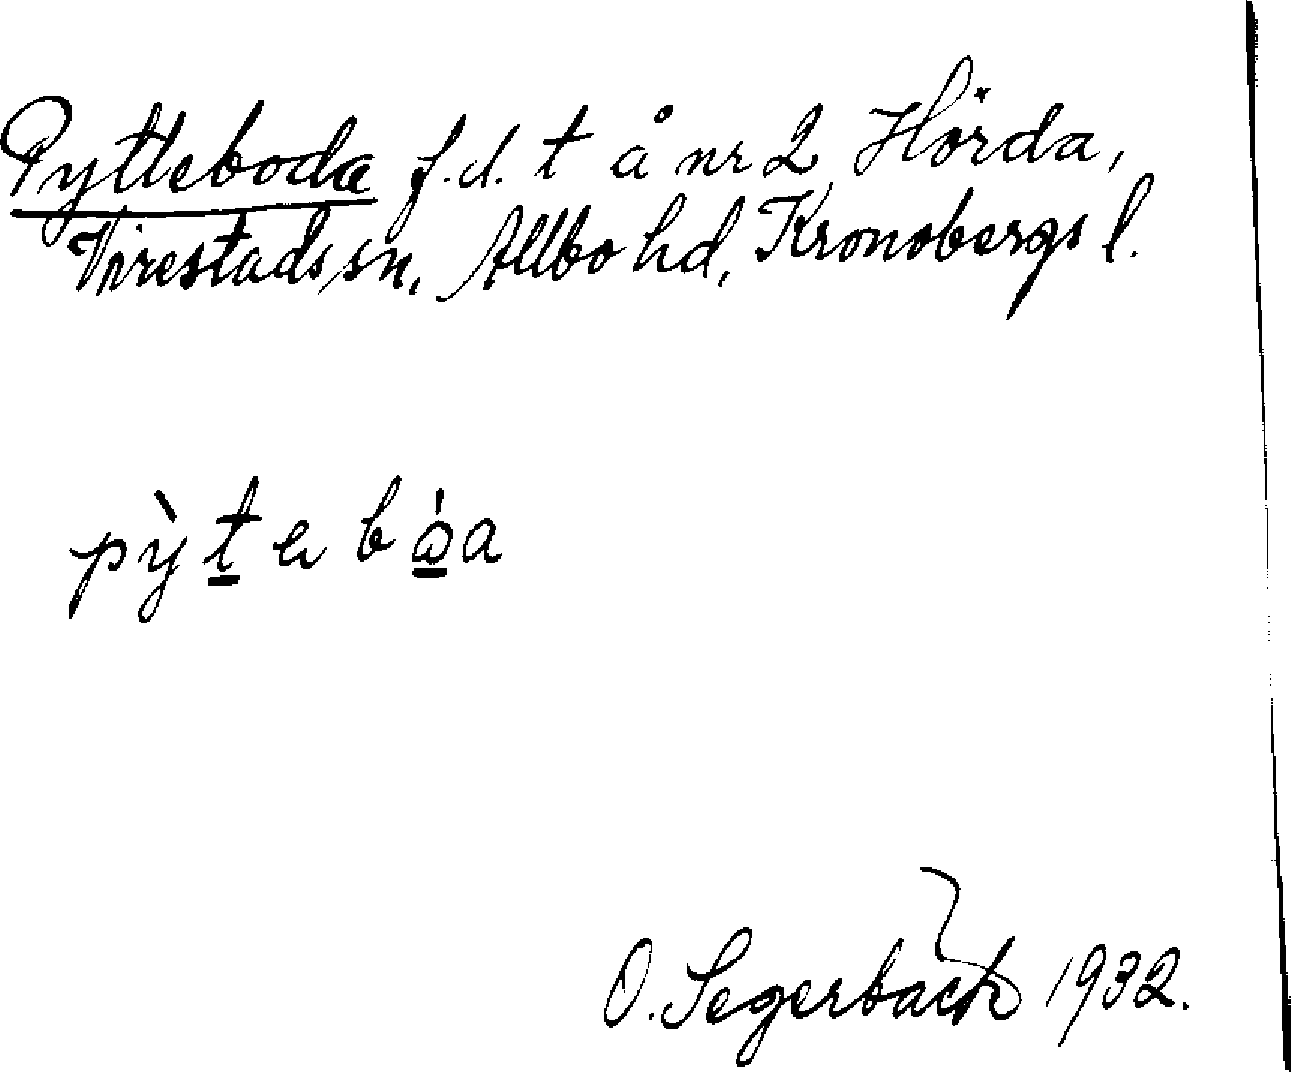 Pytteboda f.d. t å nr 2 Hörda,
Virestads sn, Allbo hd, Kronobergs l.
pỳt̲eb
O. Segerbäck 1932.